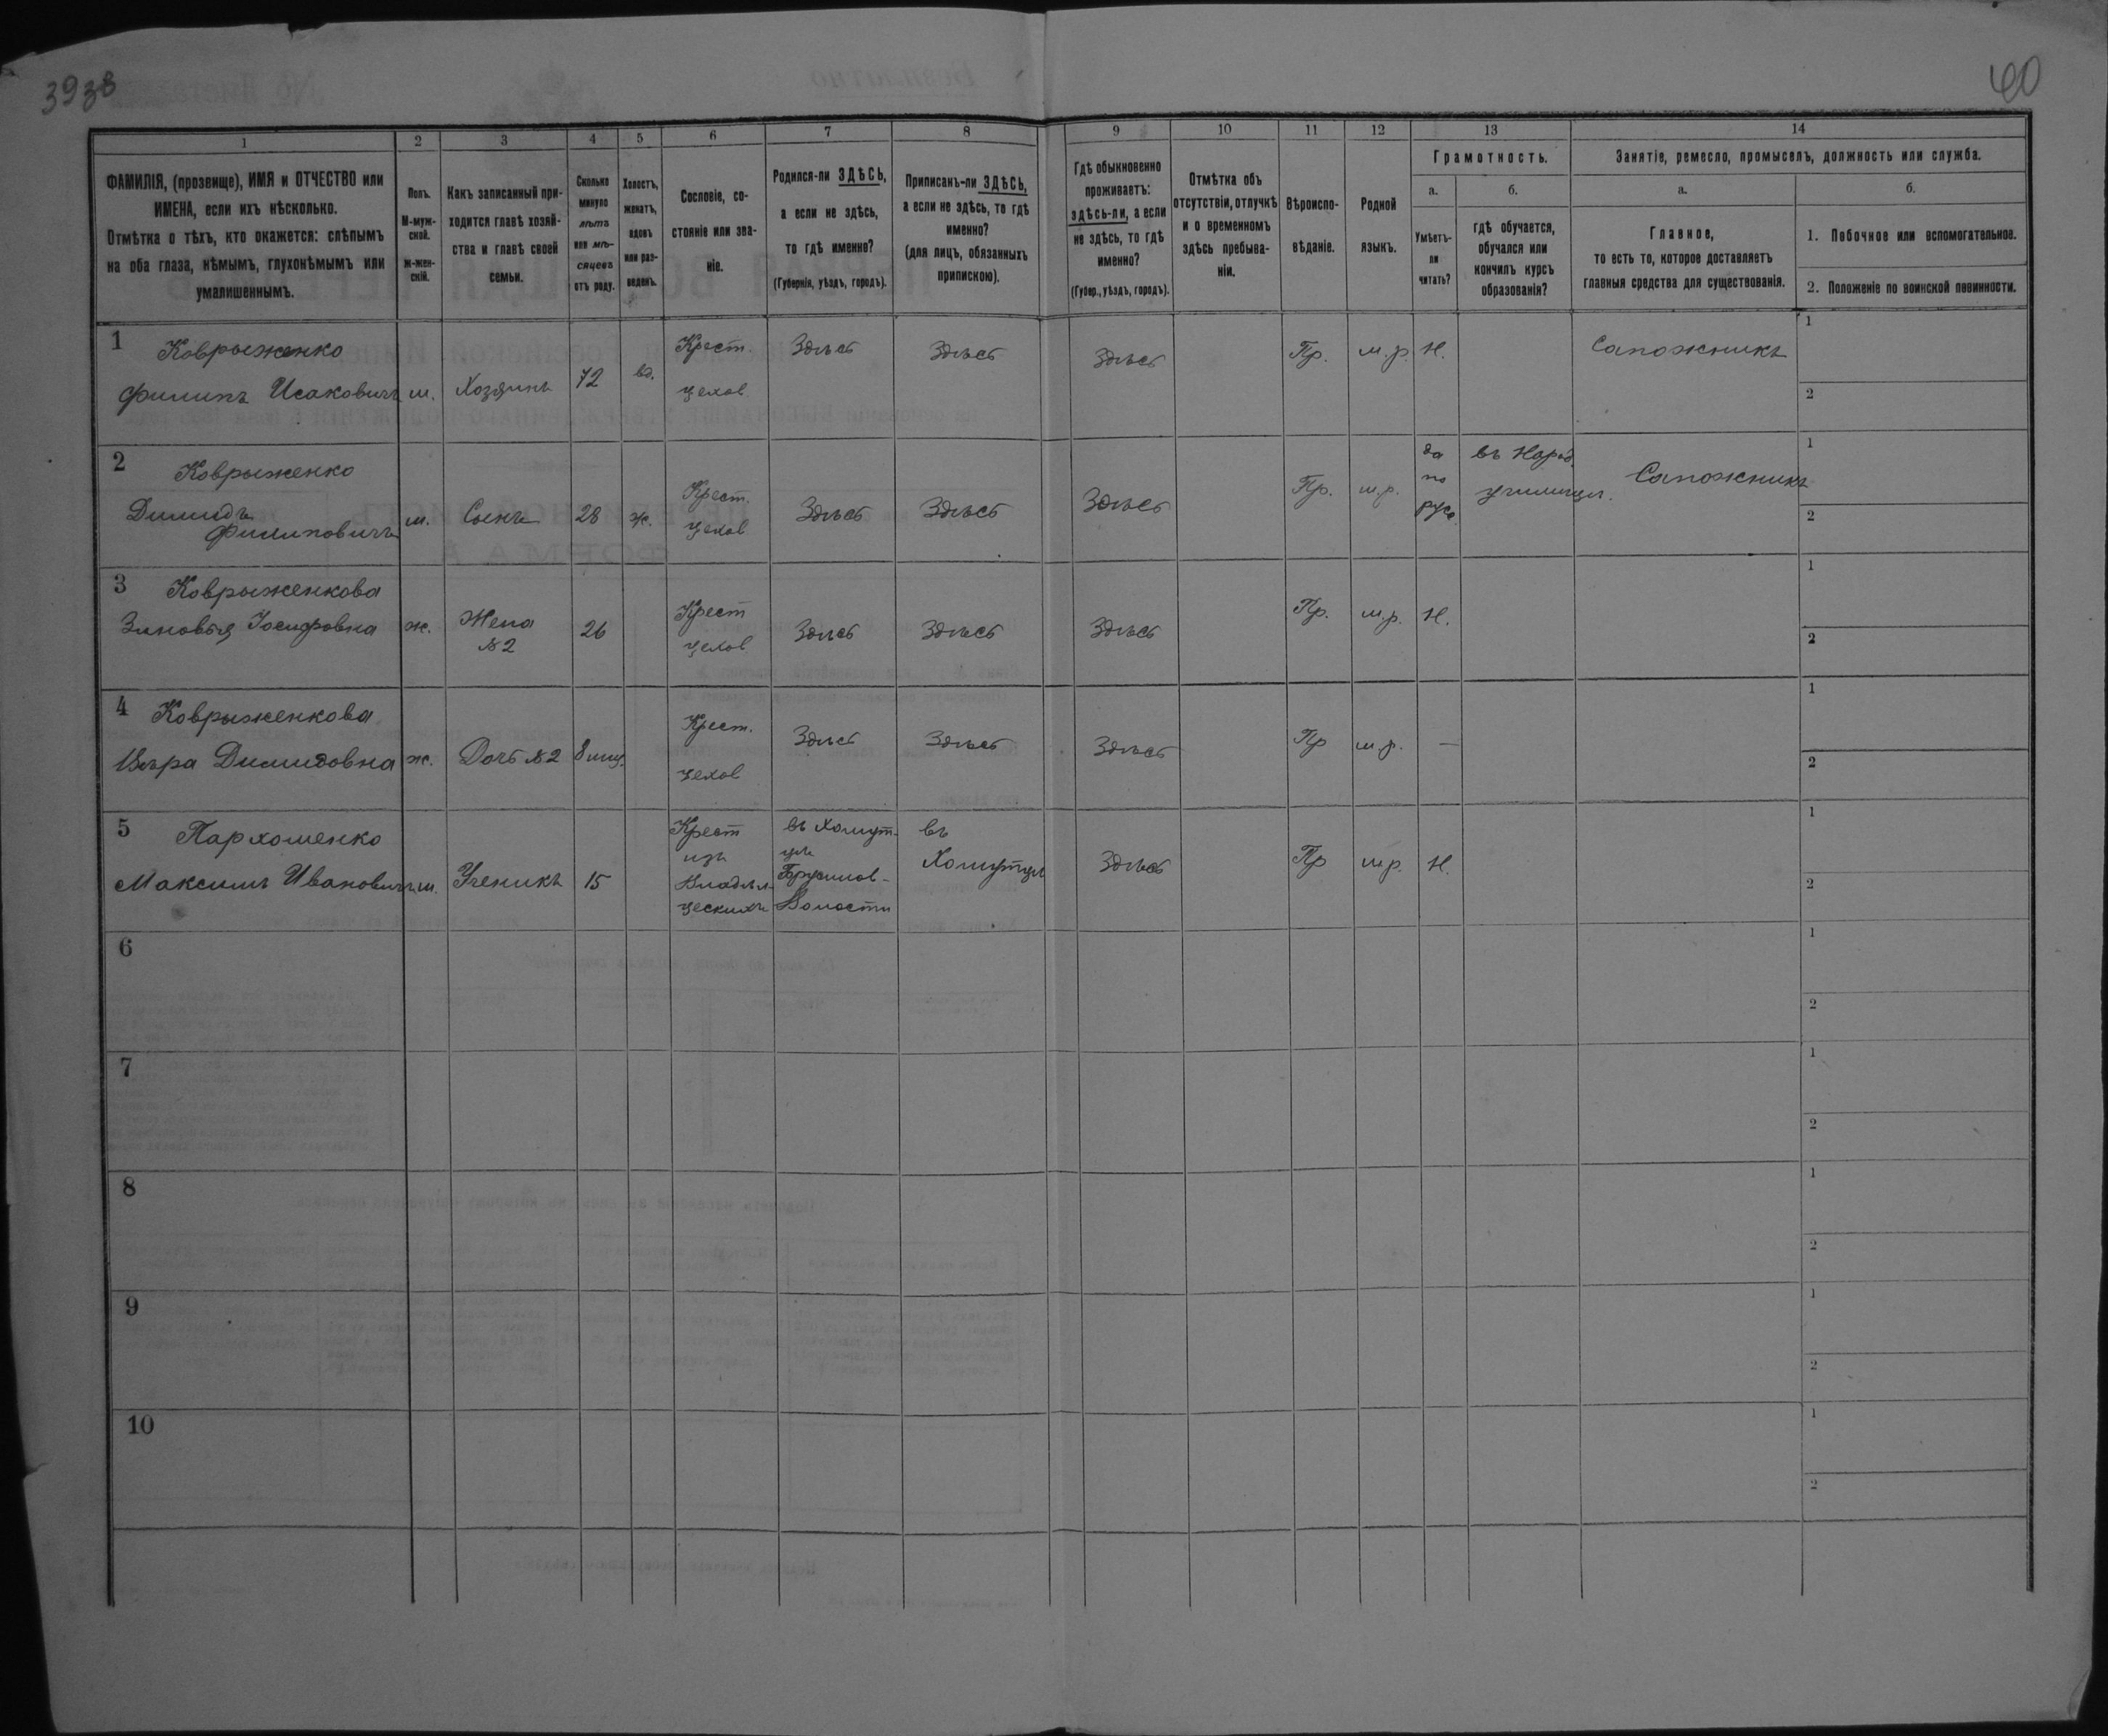 39зв
40
1
2
3
4
5
6
7
8
9
10
11
12
13
14
ФАМИЛІЯ, (прозвище), ИМЯ и ОТЧЕСТВО или
ИМЕНА, если ихъ нѣсколько.
Отмѣтка о тѣхъ, кто окажется: слѣпымъ
на оба глаза, нѣмымъ, глухонѣмымъ или
умалишеннымъ.
Полъ.
М-муж-
ской.
Ж-жен-
скій.
Какъ записанный при-
ходится главѣ хозяй-
ства и главѣ своей
семьи.
Сколько
минуло
лѣтъ
или мѣ-
сяцевъ
отъ роду.
Холостъ,
женатъ,
вдовъ
или раз-
веденъ.
Сословіе, со-
стояніе или зва-
ніе.
Родился-ли ЗДѢСЬ,
а если не здѣсь,
то гдѣ именно?
(Губернія, уѣздъ, городъ).
Приписанъ-ли ЗДѢСЬ,
а если не здѣсь, то гдѣ
именно?
(для лицъ, обязанныхъ
припискою).
Гдѣ обыкновенно
проживаетъ:
здѣсь-ли, а если
не здѣсь, то гдѣ
именно?
(Губер., уѣздъ, городъ).
Отмѣтка объ
отсутствіи, отлучкѣ
и о временномъ
здѣсь пребыва-
ніи.
Вѣроиспо-
вѣданіе.
Родной
языкъ.
Грамотность.
а.
Умѣетъ-
ли
читать?
б.
гдѣ обучается,
обучался или
кончилъ курсъ
образованія?
Занятіе, ремесло, промыселъ, должность или служба.
а.
Главное,
то есть то, которое доставляетъ
главныя средства для существованія.
б.
1. Побочное или вспомогательное.
2. Положеніе по воинской повинности.
1
Коврыженко
Филипъ Исаковичъ
м.
Хозяинъ
72
вд.
Крест.
цехов.
Здѣсь
Здѣсь
Здѣсь
Пр.
м.р.
Н.
Сапожникъ
1
2
2
Коврыженко
Димидъ
Филиповичъ
м.
Сынъ
28
ж.
Крест.
цехов
Здѣсь
Здѣсь
Здѣсь
Пр.
м.р.
да
по
русс.
въ Народ.
училищѣ.
Сапожникъ
1
2
3
Коврыженкова
Зиновья Іосифовна
ж.
Жена
№2
26
Крест
цехов
Здѣсь
Здѣсь
Здѣсь
Пр.
м.р.
Н.
1
2
4
Коврыженкова
Вѣра Димидовна
ж.
Дочь №2
8 мщ.
Крест.
цехов
Здѣсь
Здѣсь
Здѣсь
Пр
м.р.
—
1
2
5
Пархоменко
Максимъ Ивановичъ
м.
Ученикъ
15
Крест
изъ
Владѣл-
ческихъ
въ Хомут-
цѣ
Брусилов-
Волости
въ
Хомутцѣ
Здѣсь
Пр
м.р.
Н.
1
2
6
1
2
7
1
2
8
1
2
9
1
2
10
1
2